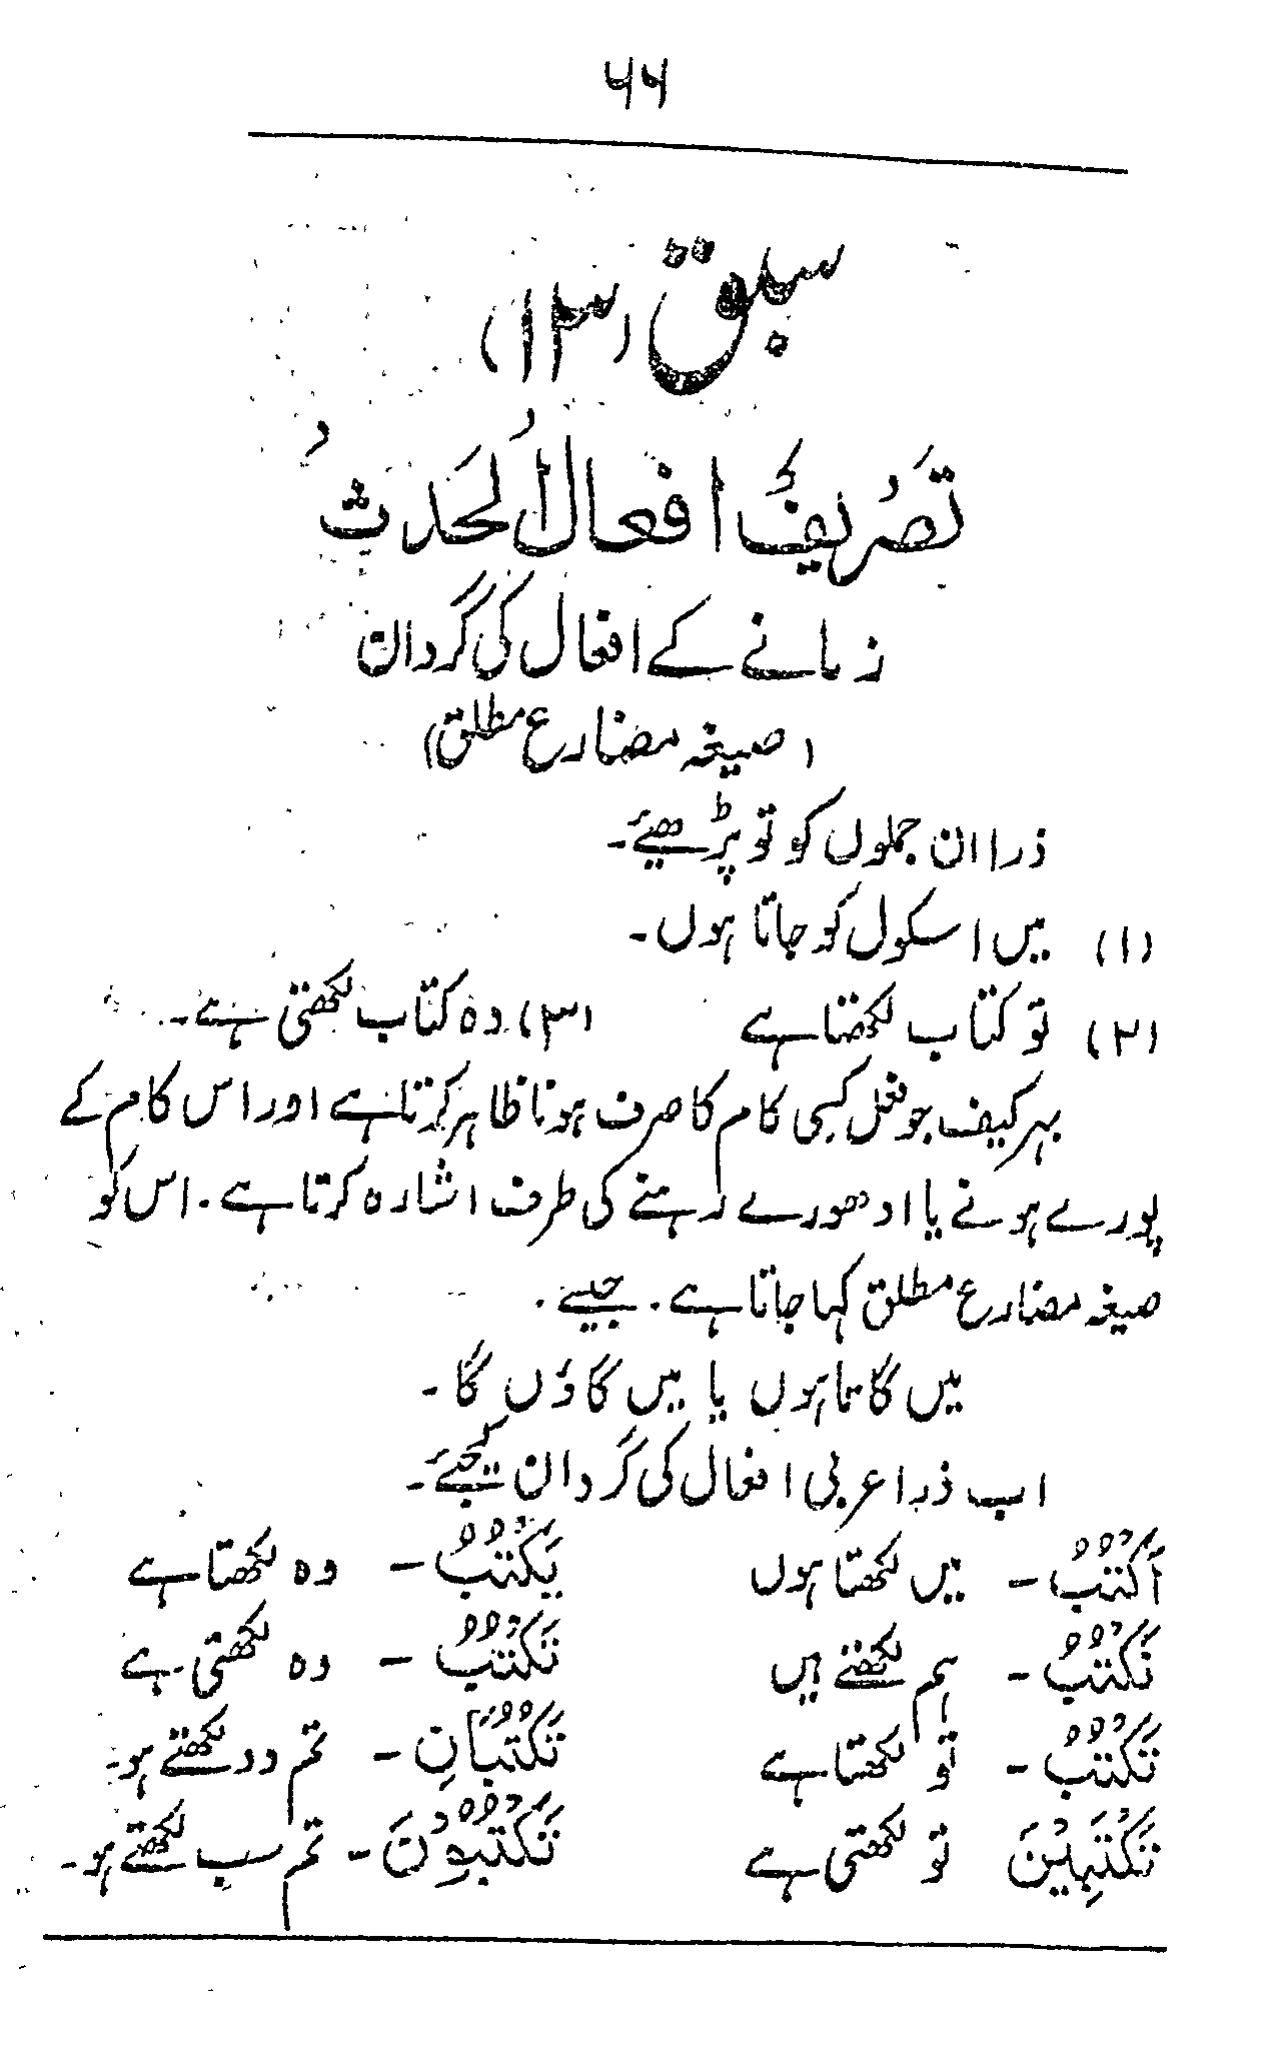 ۶۶
سبق (۱۳)
تَصْرِیفُ افعالُ الحَدثُ
زمانے کے افعال کی گردان
(صیغہ مضارع مطلق)
ذرا ان جملوں کو تو پڑھیئے۔
(۱) میں اسکول کو جاتا ہوں۔
(۲) تو کتاب لکھتا ہے (۳) وہ کتاب لکھتی ہے۔
بہر کیف جو فعل کسی کام کا صرف ہونا ظاہر کرتا ہے اور اس کام کے
پورے ہونے یا ادھورے رہنے کی طرف اشارہ کرتا ہے۔ اس کو
صیغہ مضارع مطلق کہا جاتا ہے۔ جیسے۔
میں گاتا ہوں یا میں گاؤں گا۔
اب ذرا عربی افعال کی گردان کیجئے۔
اَکْتُبُ - میں لکھتا ہوں یَکْتُبُ - وہ لکھتا ہے
نَکْتُبُ - ہم لکھتے ہیں تَکْتُبُ - وہ لکھتی ہے
تَکْتُبُ - تو لکھتا ہے تَکْتُبَانِ - تم دو لکھتے ہو۔
تَکْتُبِیْنَ تو لکھتی ہے تَکْتُبُوْنَ - تم سب لکھتے ہو۔